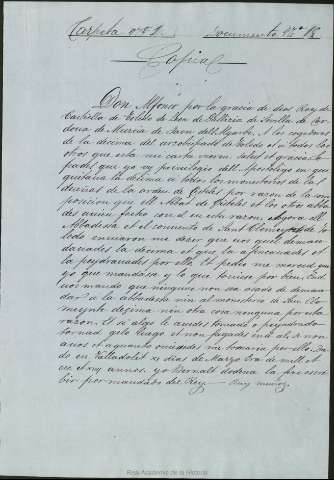 Carpeta nº 8. Documento Nº 18
Copia
Don Alfonso por la gracia de dios Rey de
Castilla de Toledo de Leon de Gallicia de Sevilla de Cor
dova de Murcia de Jaen dell Algarbe, A los cogedores
de la decima del arzobispado de Toledo et a todos los
otros que esta mi carta vieren. Salut et gracia. Se
pades que yo vy previlegios dell Apostoligo en que
quitaria la decima a todos los monesterios de las
duenas de la orden de Cistels por razon de la com
posicion que ell Abbat de Cistels et los otros abba
des avien fecho con el en esta razon. Agora ell
Abbadessa et el convento de Sant Clemeynte de To
ledo enviaron me decir que vos quel demandades
la decima et que la
la peyndrades por ella et pidio me merced que
yo que mandasse y lo que toviese por bien. Onde
vos mando que ninguno non sea osado de deman
dar a la abbadessa nin al monesterio de Sant Cle
meynte decima nin otra cosa ninguna por esta
razon. Et si algo le avedes tomado o peyndrado
tornad gelo luego et non fagades end al. Si non
a vos et a quanto oviessedes me tornaria por ello. Da
da en Valladolit xi dias de Março Era de mill et
et xvj annos. yo Bernalt dedena la fiz escre
bir por mandado del Rey. = Ruy muñoz.
Real Academia de la Historia